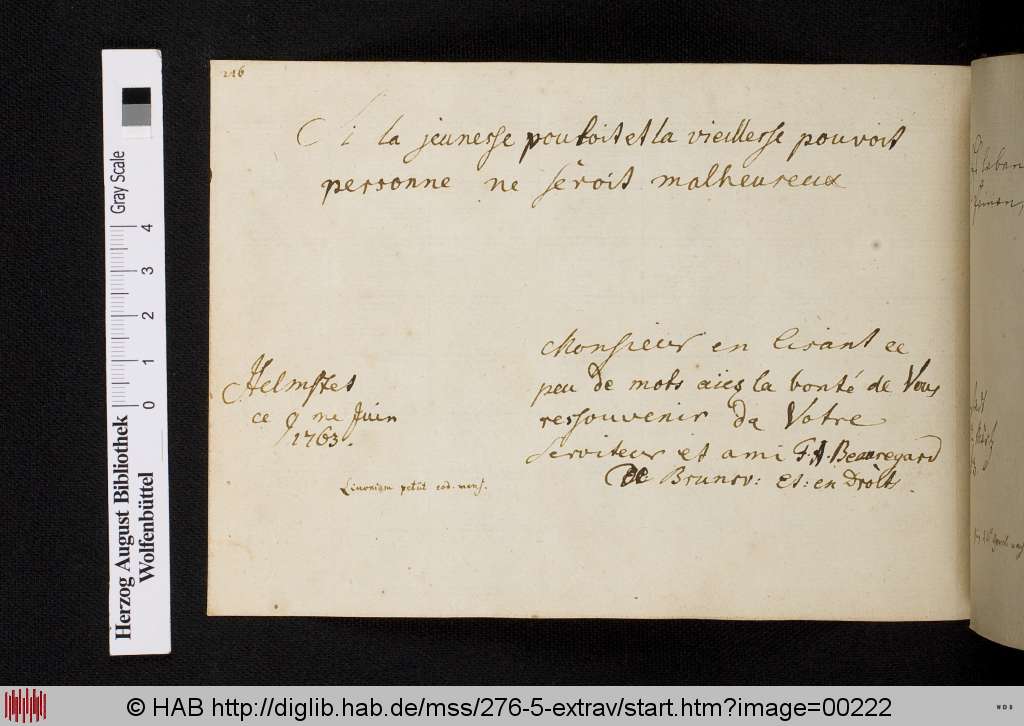 246
Si la jeunesse pouloit et la vieillesse pouvoit
personne ne seroit malheureux
Monsieur en lisant ce
peu de mots aies la bonté de Vous
ressouvenir da Votre
serviteur et ami Beauregard
de Brunsv: Et: en Droits.
Helmstet
ce 9 ne Juin
1763.
Livoniam petiit eod. mens.
Herzog August Bibliothek
Wolfenbüttel
Gray Scale
0 1 2 3 4
© HAB http://diglib.hab.de/mss/276-5-extrav/start.htm?image=00222